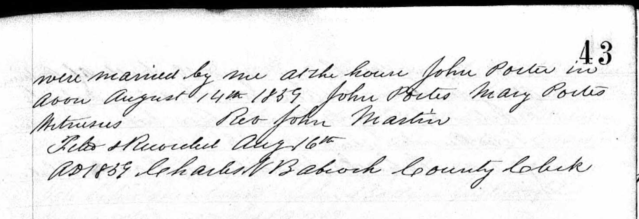 43
were married by me at the house John Porter in
Avon August 14th 1859 John Porter Mary Porter
Witnesses Rev John Martin
Filed & Recorded Aug 16th
AD 1859 Charles N Babcock County Clerk